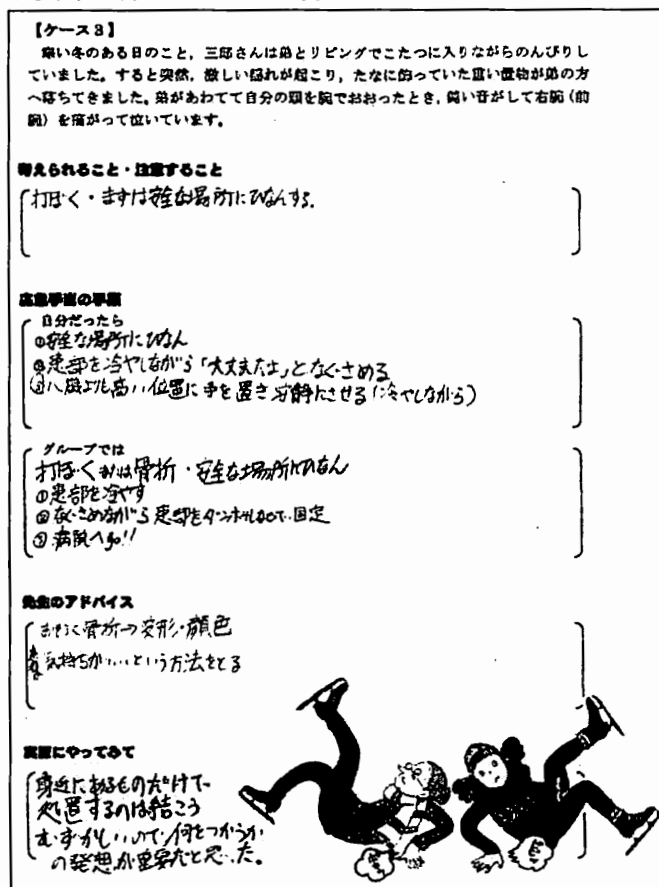 【ケース3】
寒い冬のある日のこと，三郎さんは弟とリビングでこたつに入りながらのんびりし
ていました。すると突然，激しい揺れが起こり，たなに飾っていた重い置物が弟の方
へ落ちてきました。弟があわてて自分の頭を腕でおおったとき，鈍い音がして右腕（前
腕）を痛がって泣いています。
考えられること・注意すること
打ぼく・まずは安全な場所にひなんする。
応急手当の手順
自分だったら
①安全な場所にひなん
②患部を冷やしながら「大丈夫だよ」となぐさめる
③心臓より高い位置に手を置き安静にさせる（冷やしながら）
グループでは
打ぼくまたは骨折・安全な場所にひなん
①患部を冷やす
②なぐさめながら患部をダンボールなどで固定
③病院へgo!!
先生のアドバイス
おそらく骨折→変形・顔色
気持ちがいいという方法をとる
実際にやってみて
身近にあるものだけで
処置するのは結こう
むずかしいので、何をつかうか
の発想が重要だと思った。